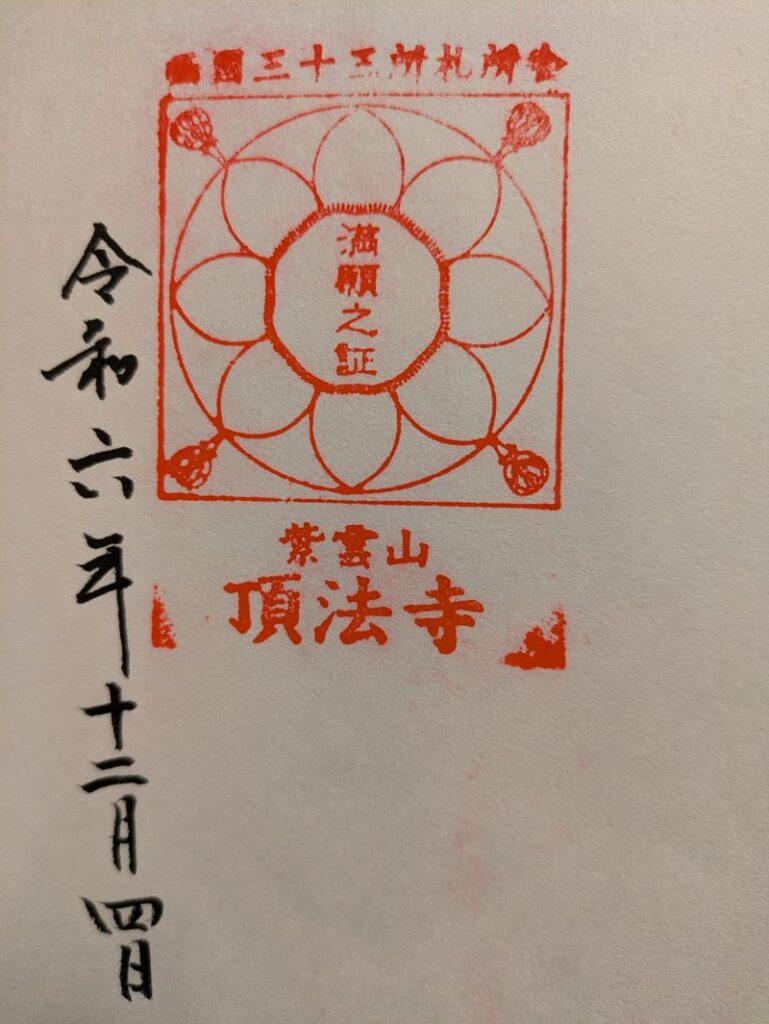 西国三十三所札所会
満願之証
紫雲山
頂法寺
令和六年十二月四日